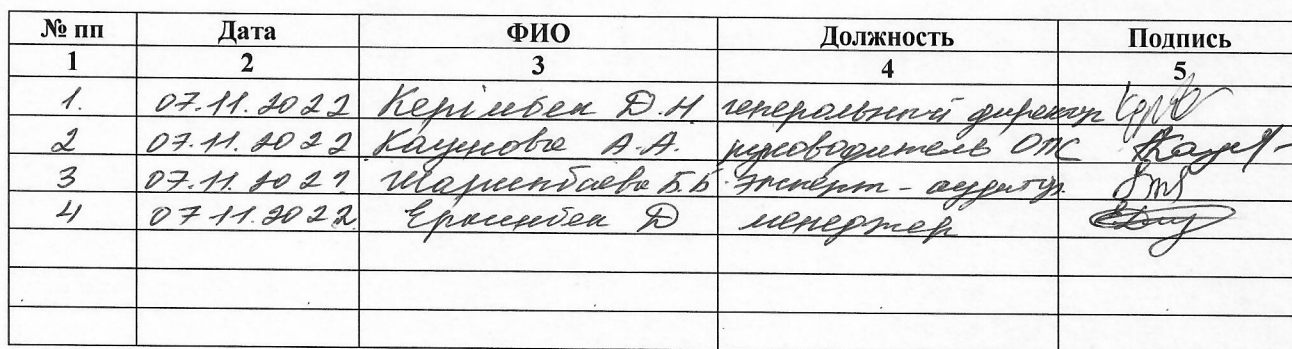 № пп Дата ФИО Должность Подпись
1 2 3 4 5
1. 07.11.2022 Керімбек Д.Н генеральный директор
2 07.11.2022 А.А. руководитель ОТК
3 07.11.2022 Б.Б. Эксперт - аудитор
4 07.11.2022 Д менеджер